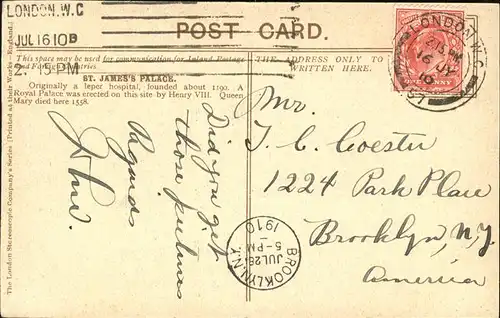 LONDON.W.C
JUL 16 10 B
2. 15 PM
POST CARD.
This space may be used for communication for Inland Postage
and Foreign Countries
THE ADDRESS ONLY TO
WRITTEN HERE.
ST. JAMES'S PALACE.
Originally a leper hospital, founded about 1190. A
Royal Palace was erected on this site by Henry VIII. Queen
Mary died here 1558.
The London Stereoscopic Company's Series (Printed at their Works—England.)
Did you get
those pictures
Regards
LONDON. W.C
2.15 PM
16 JY
10
Mr.
1224 Park Place
Brooklyn, N.Y.
America
BROOKLYN, N.Y.
JUL 26
5-PM
1910